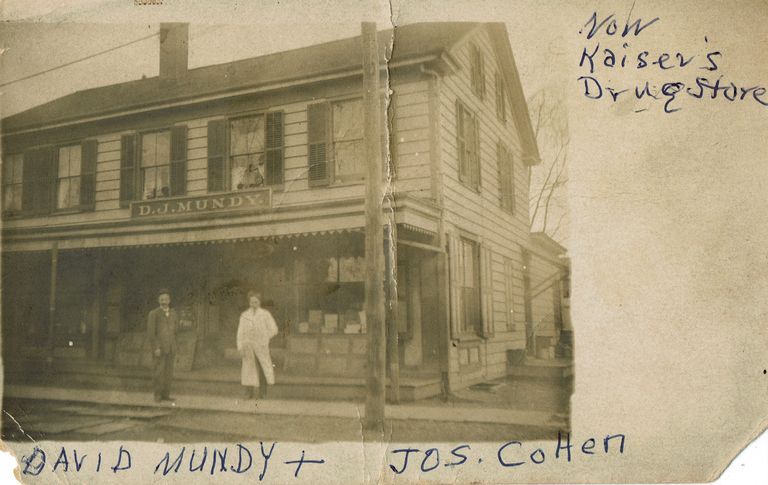 Now
Kaiser's
Drug Store
D. J. MUNDY.
DAVID MUNDY + JOS. COHEN